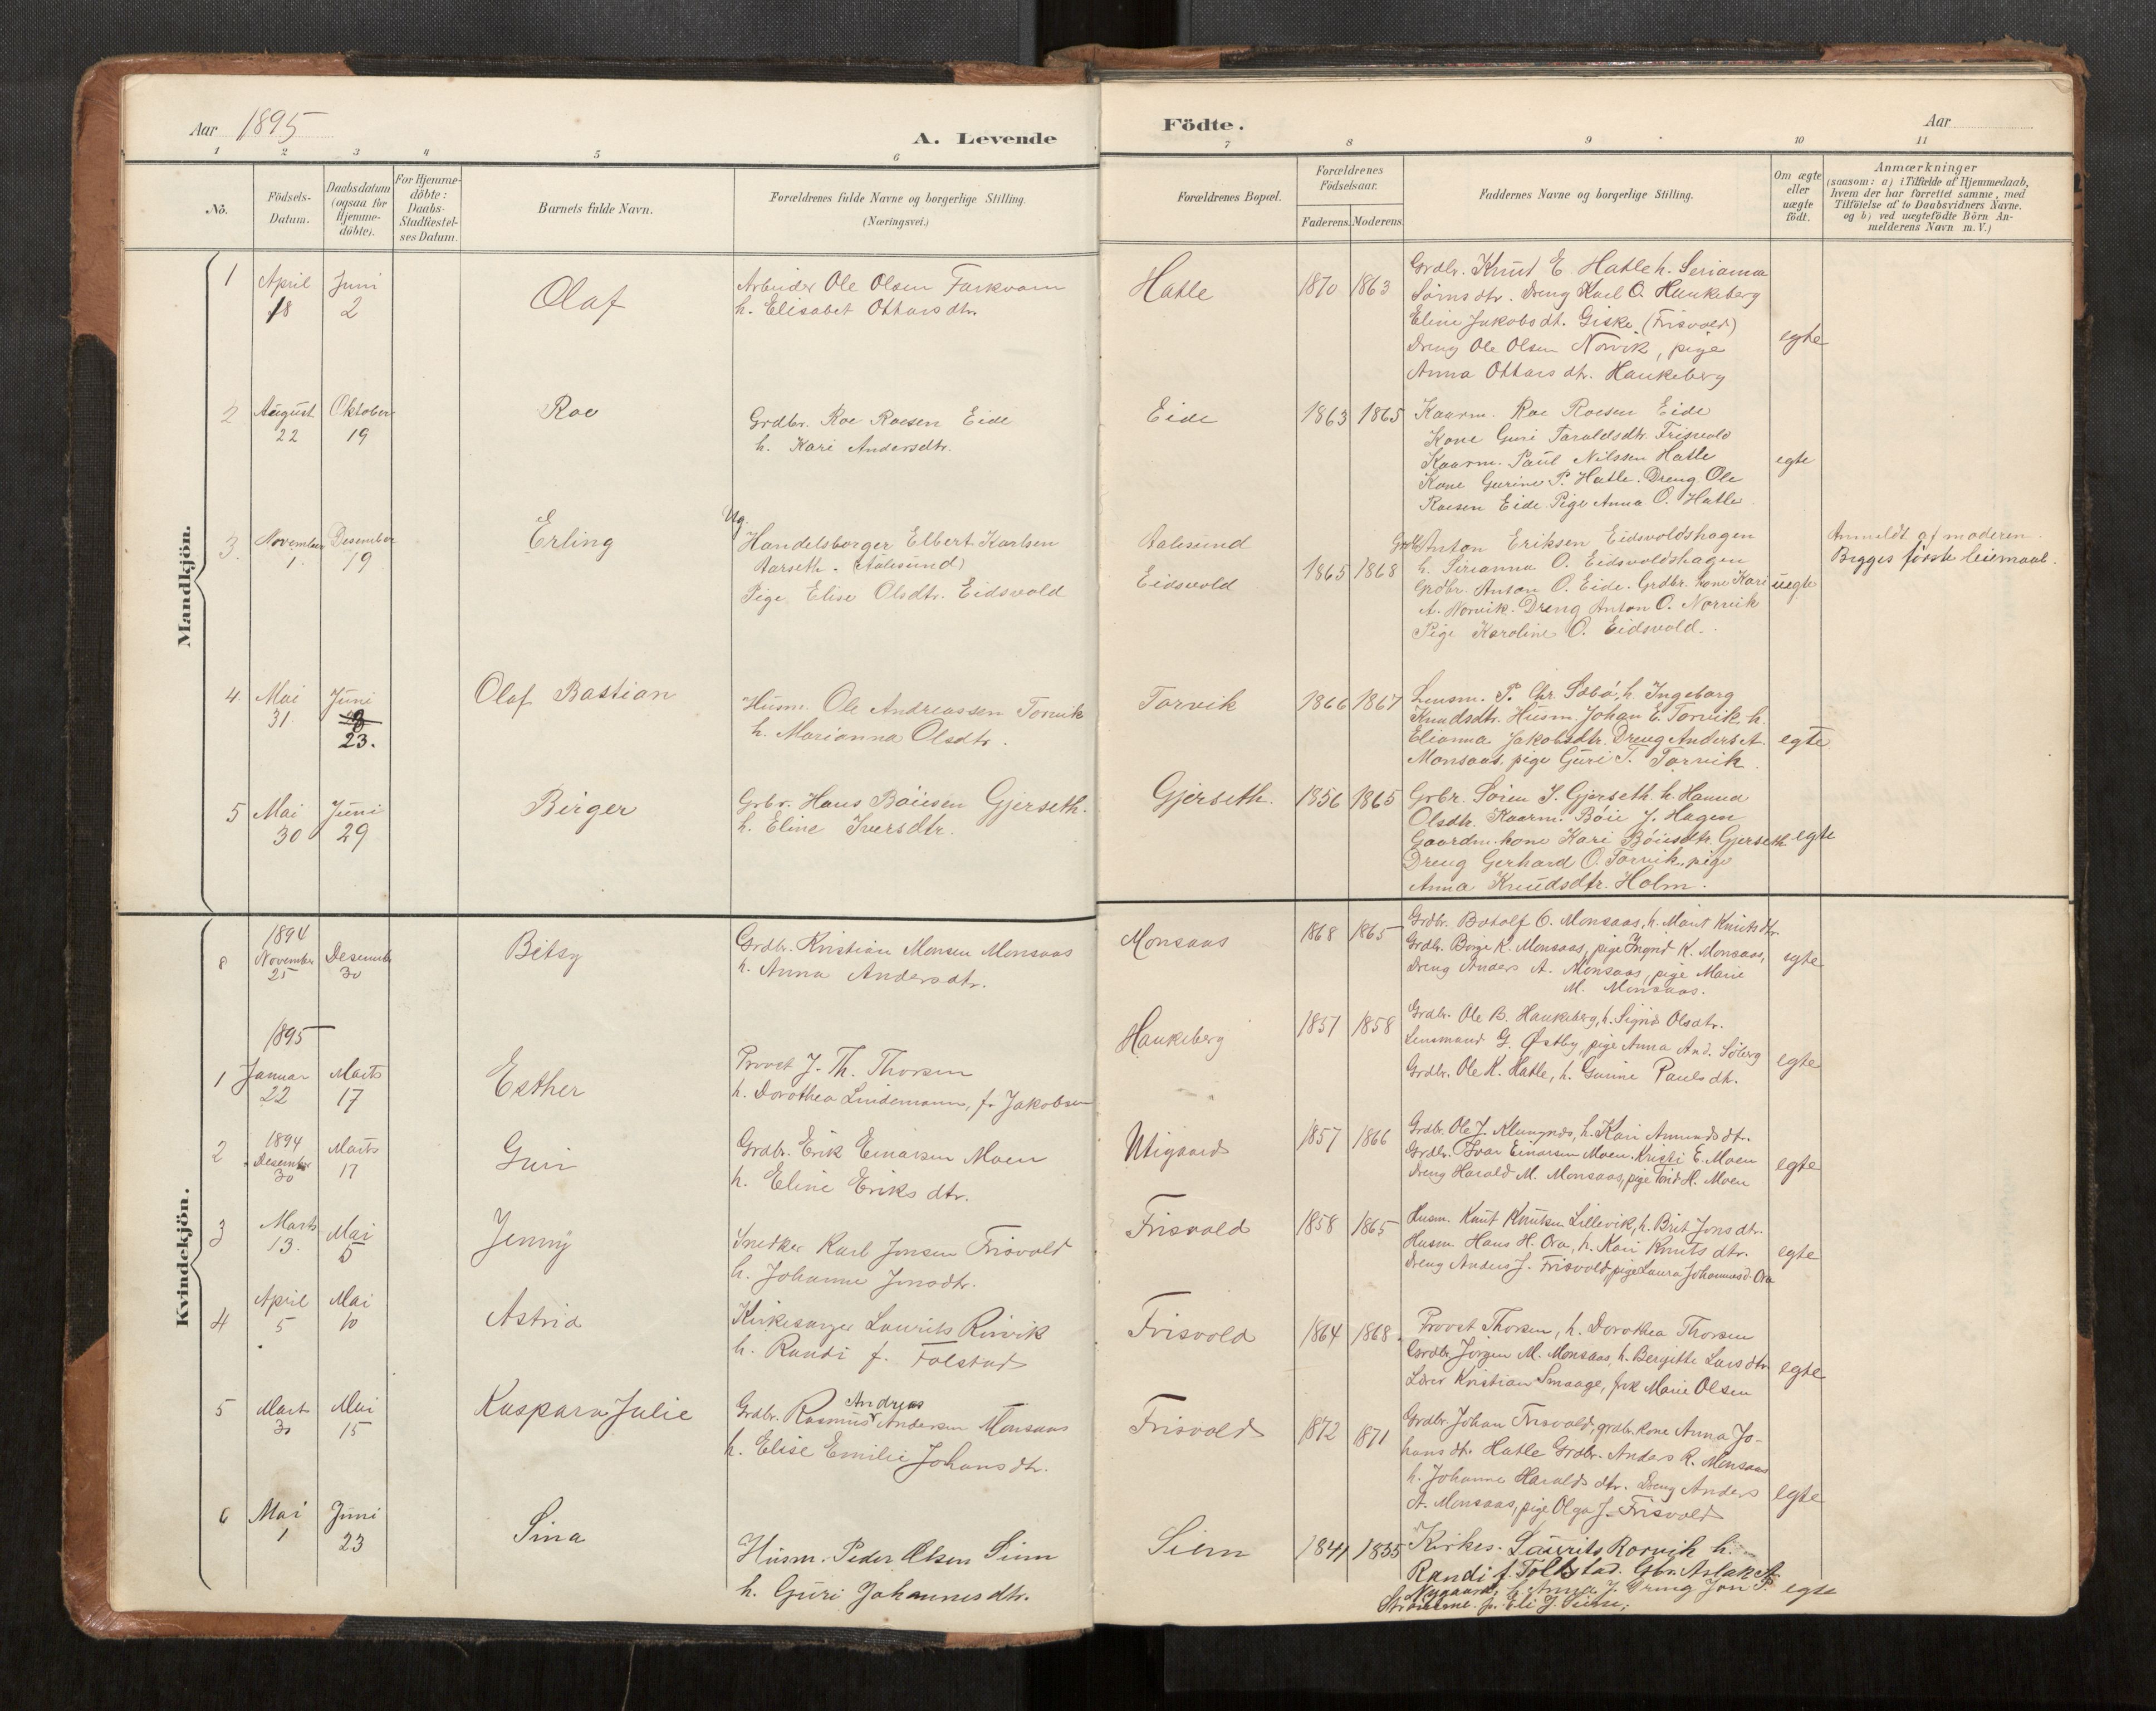 Aar 1895
A. Levende
Födte.
Aar
1 2 3 4 5 6 7 8 9 10 11
Nò.
Födsels-
Datum.
Daabsdatum
(ogsaa for
Hjemme-
döbte).
For Hjemme-
döbte:
Daabs-
Stadfestel-
ses Datum.
Barnets fulde Navn.
Forældrenes fulde Navne og borgerlige Stilling.
(Næringsvei.)
Forældrenes Bopæl.
Forældrenes
Födselsaar.
Faderens. Moderens.
Faddernes Navne og borgerlige Stilling.
Om ægte
eller
uægte
födt.
Anmærkninger
(saasom: a) i Tilfælde af Hjemmedaab,
hvem der har forrettet samme, med
Tilföielse af to Daabsvidners Navne.
og b) ved uægtefödte Börn An-
melderens Navn m. V.)
Mandkjön.
1 April 18 Juni 2
Olaf
Arbeider Ole Olsen Farkvam
h. Elisabet Ottarsdtr.
Hatle
1870 1863
Grdbr. Knut E. Hatle h. Serianna
Sørnsdtr. Dreng Karl O. Haukeberg
Eline Jakobsdt. Giske (Frisvold)
Dreng Ole Olsen Norvik, pige
Anna Ottarsdtr. Haukeberg
egte
2 August 22 Oktober 19
Roe
Grdbr. Roe Roesen Eide
h. Kari Andersdtr.
Eide
1863 1865
Kaarm. Roe Roesen Eide
Kone Guri Taraldsdtr. Frisvold
Kaarm. Paul Nilssen Hatle
Kone Gurine P. Hatle. Dreng Ole
Roesen Eide Pige Anna O. Hatle
egte
3. November 1. Desember 19
Erling
Ug.
Handelsborger Elbert Karlsen
Aarseth. (Aalesund)
Pige Elise Olsdtr. Eidsvold
Aalesund
Eidsvold
1865 1868
Grdb. Anton Eriksen Eidsvoldshagen
h. Serianna O. Eidsvoldshagen
Grdbr. Anton O. Eide. Grdbr. kone Kari
A. Norvik. Dreng Anton O. Norvik
Pige Karoline O. Eidsvold.
uegte
Anmeldt af moderen.
Begges første leiermaal.
4. Mai 31. Juni 23.
Olaf Bastian
Husm. Ole Andreassen Torvik
h. Marianna Olsdtr.
Torvik
1866 1867
Lensm. P. Chr. Sæbø, h. Ingeborg
Knudsdtr. Husm. Johan E. Torvik h.
Elianna Jakobsdtr. Dreng Anders A.
Monsaas, pige Guri T. Torvik.
egte
5 Mai 30 Juni 29
Birger
Grbr. Hans Böiesen Gjerseth.
h. Eline Iversdtr.
Gjerseth.
1856 1865
Grbr. Sören J. Gjerseth. h. Hanna
Olsdtr. Kaarm. Böie J. Hagen
Gaardm. kone Kari Böiesdtr. Gjerseth
Dreng Gerhard O. Torvik, pige
Anna Knudsdtr. Holm.
egte
Kvindekjön.
8 1894 November 25 Desember 30
Betsy
Grdbr. Kristian Monsen Monsaas
h. Anna Andersdtr.
Monsaas
1868 1865
Grdbr. Botolf O. Monsaas, h. Marit Knutsdtr.
Grdbr. Börge K. Monsaas, pige Ingrid K. Monsaas,
Dreng Anders A. Monsaas, pige Marie
M. Monsaas.
egte
1895
1 Januar 22 Marts 17
Esther
Provst J. Th. Thorsen
h. Dorothea Lindemann, f. Jakobsen
Haukeberg
1857 1858
Grdbr. Ole B. Haukeberg, h. Sigrid Olsdtr.
Lensmand G. Østby, pige Anna And. Söberg
Grdbr. Ole K. Hatle, h. Gurine Paulsdtr.
egte
2 1894 Desember 30 Marts 17
Guri
Grdbr. Erik Einarsen Moen
h. Eline Eriksdtr.
Utigaard
1857 1866
Grdbr. Ole J. Klungnes, h. Kari Amundsdtr.
Grdbr. Ivar Einarsen Moen. Kristi E. Moen
Dreng Harald M. Monsaas, pige Torid H. Moen
egte
3 Marts 13. Mai 5
Jenny
Snedker Karl Jonsen Frisvold
h. Johanne Jonsdtr.
Frisvold
1858 1865
Husm. Knut Knutsen Lillevik, h. Brit Jonsdtr.
Husm. Hans H. Ora, h. Kari Knutsdtr.
Dreng Anders J. Frisvold, pige Laura Johannesd. Ora
egte
4 April 5 Mai 10
Astrid
Kirkesanger Laurits Rörvik
h. Randi f. Folstad
Frisvold
1864 1868.
Provst Thorsen, h. Dorothea Thorsen
Grdbr. Jörgen M. Monsaas, h. Bergitte Larsdtr
Lærer Kristian Smaage, frk Marie Olsen
egte
5 Mart 30 Mai 15
Kaspara Julie
Andreas
Grdbr. Rasmus Andersen Monsaas
h. Elise Emilie Johansdtr.
Frisvold
1872 1871
Grdbr. Johan Frisvold, grdbr. kone Anna Jo-
hansdtr. Hatle Grdbr. Anders R. Monsaas
h. Johanne Haraldsdtr. Dreng Anders
A. Monsaas, pige Olga J. Frisvold
egte
6 Mai 1 Juni 23
Sina
Husm. Peder Olsen Siem
h. Guri Johannesdtr.
Siem
1841 1855
Kirkes. Laurits Rorvik h.
Randi f. Folkstad. Gbr. Aslak A.
Nygaard, h. Anna J. Dreng Jon P.
p. Eli J. Siem;
egte